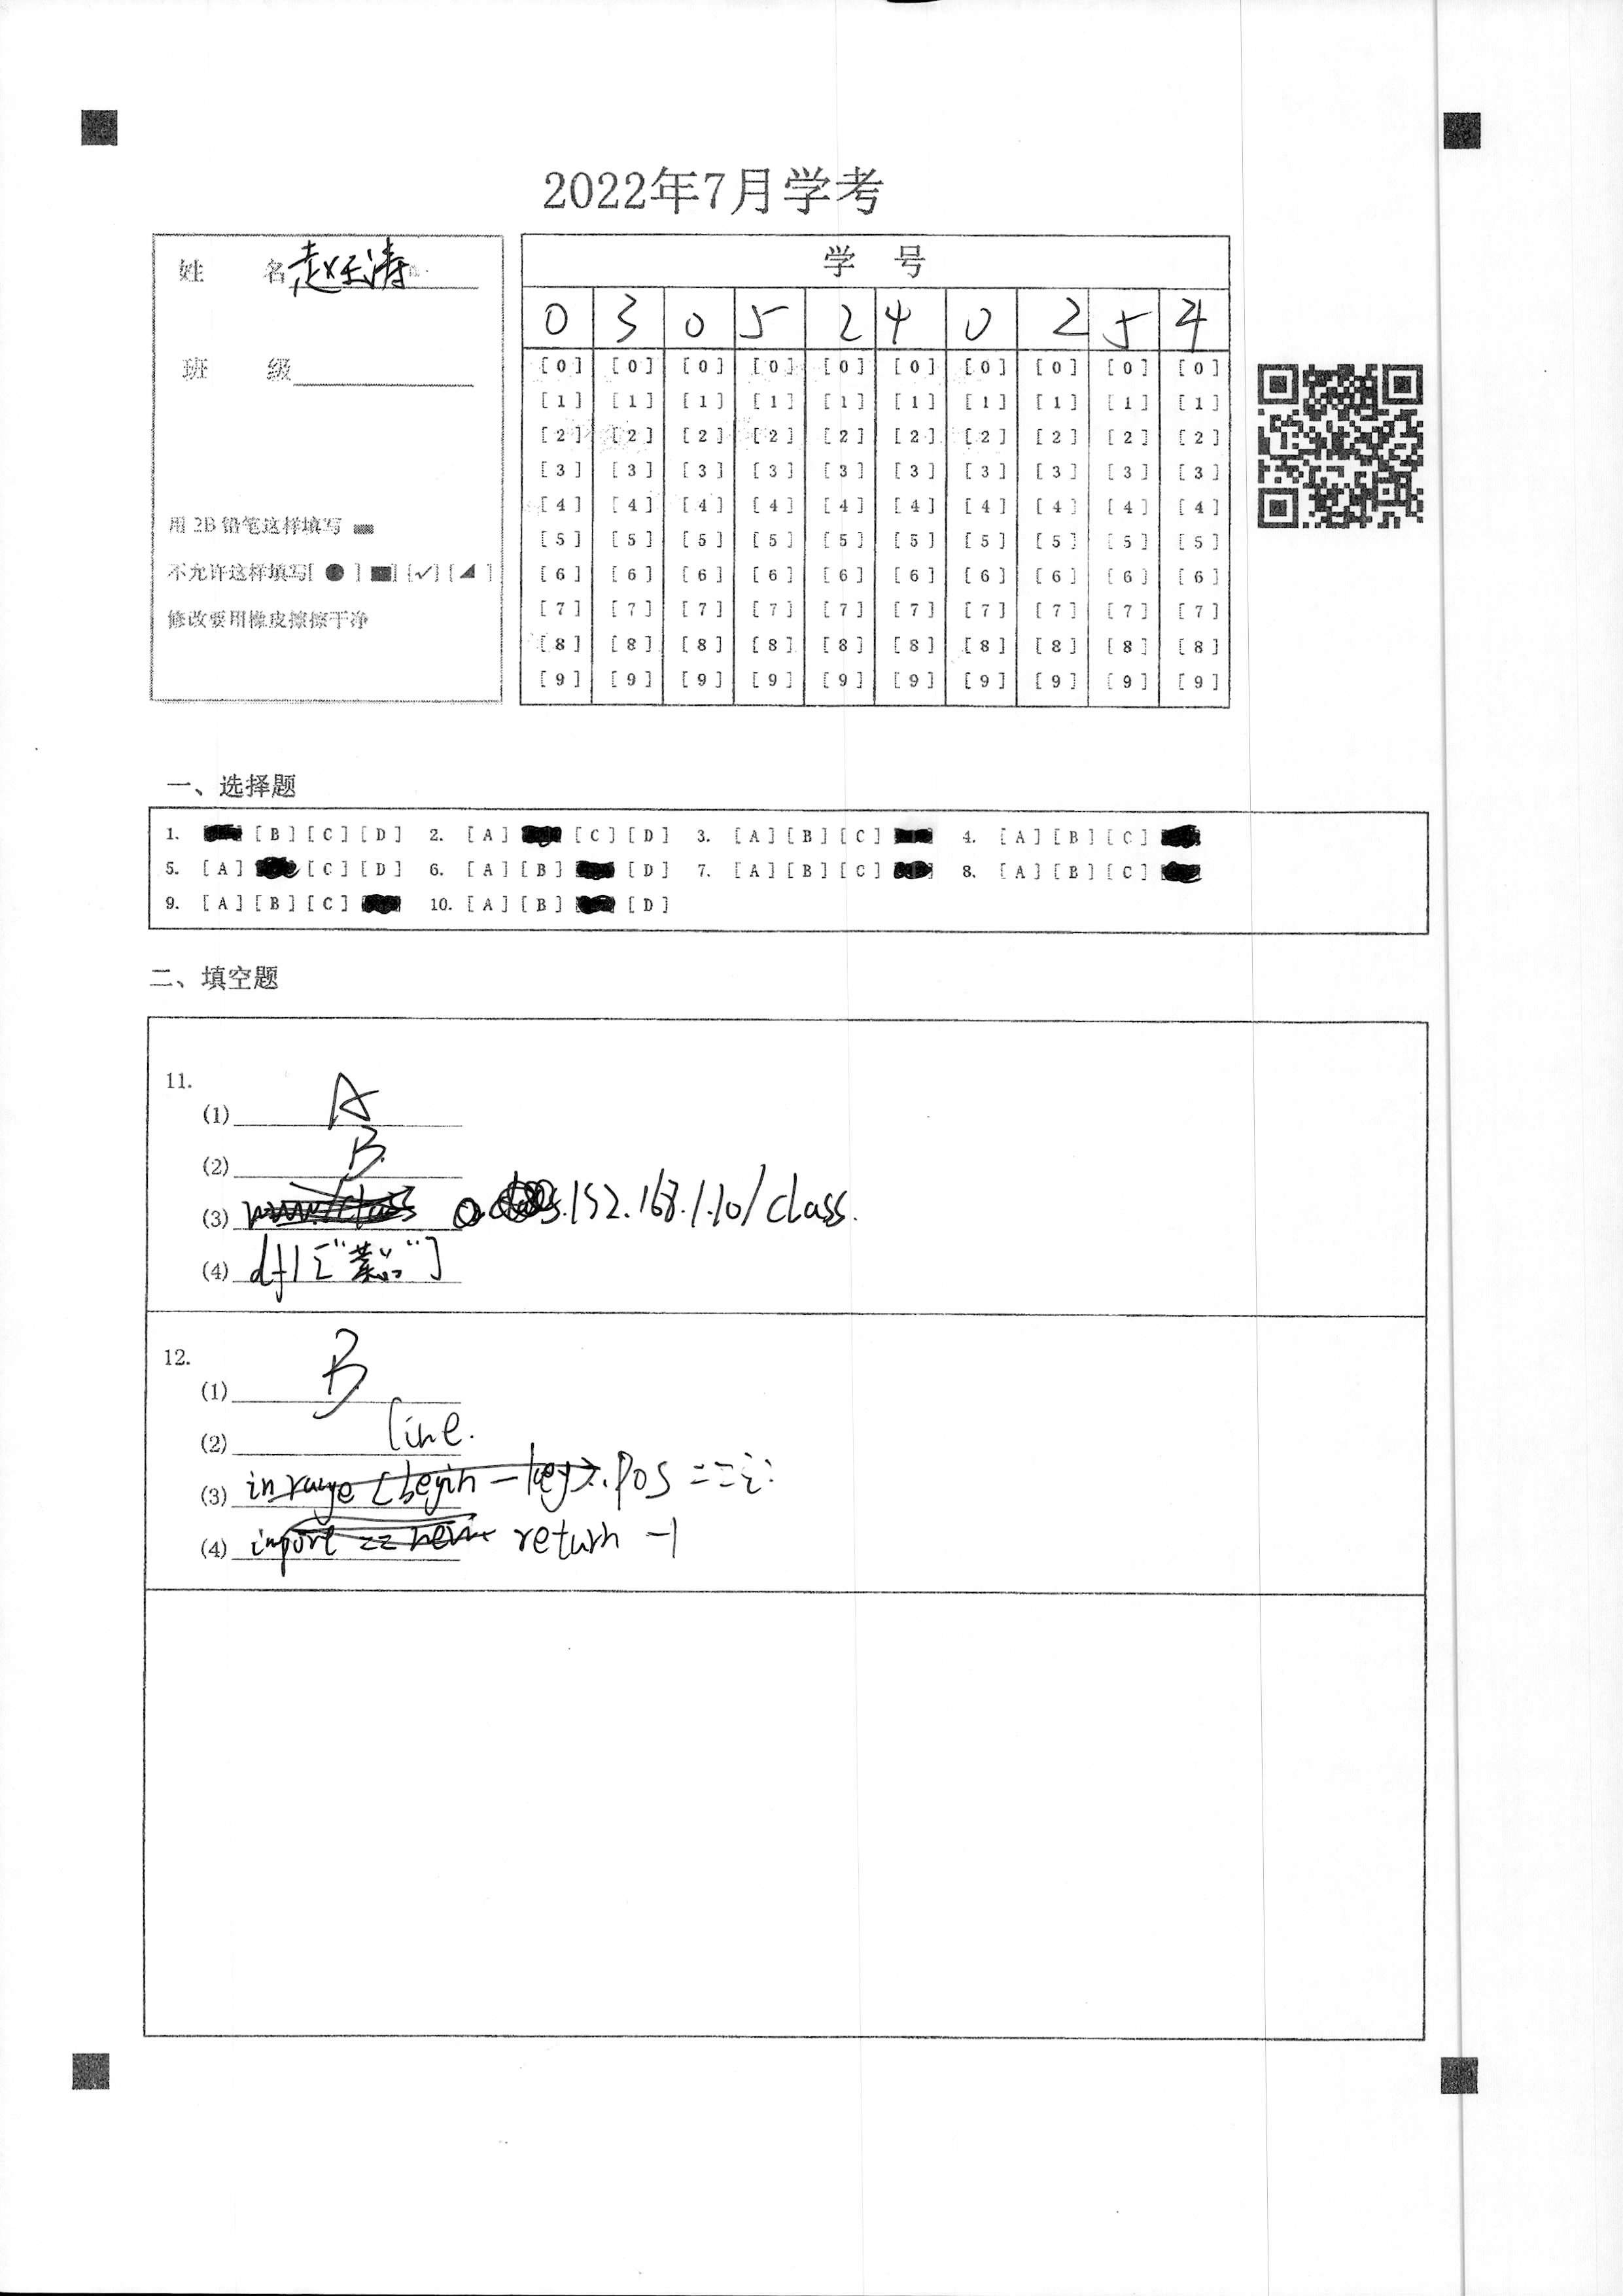 2022年7月学考
姓 名 赵天涛
班 级
用2B铅笔这样填写
不允许这样填写[ ● ] [■] [✓] [ ◢ ]
修改要用橡皮擦擦干净
学 号
0 3 0 5 2 4 0 2 5 4
[0] [0] [0] [0] [0] [0] [0] [0] [0] [0]
[1] [1] [1] [1] [1] [1] [1] [1] [1] [1]
[2] [2] [2] [2] [2] [2] [2] [2] [2] [2]
[3] [3] [3] [3] [3] [3] [3] [3] [3] [3]
[4] [4] [4] [4] [4] [4] [4] [4] [4] [4]
[5] [5] [5] [5] [5] [5] [5] [5] [5] [5]
[6] [6] [6] [6] [6] [6] [6] [6] [6] [6]
[7] [7] [7] [7] [7] [7] [7] [7] [7] [7]
[8] [8] [8] [8] [8] [8] [8] [8] [8] [8]
[9] [9] [9] [9] [9] [9] [9] [9] [9] [9]
一、选择题
1. [B] [C] [D] 2. [A] [C] [D] 3. [A] [B] [C] 4. [A] [B] [C]
5. [A] [C] [D] 6. [A] [B] [D] 7. [A] [B] [C] 8. [A] [B] [C]
9. [A] [B] [C] 10. [A] [B] [D]
二、填空题
11.
(1) A
(2) B
(3) 192.168.1.10/class.
(4) df1["菜品"]
12.
(1) B
(2) line.
(3) in range (begin - key). pos == i:
(4) import == return -1